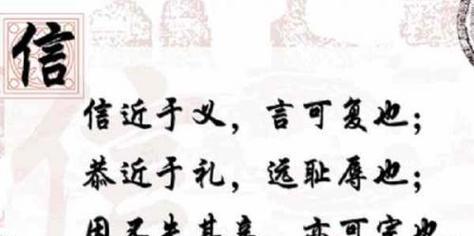 信
信近于义，言可复也；
恭近于礼，远耻辱也；
因不失其亲，亦可宗也